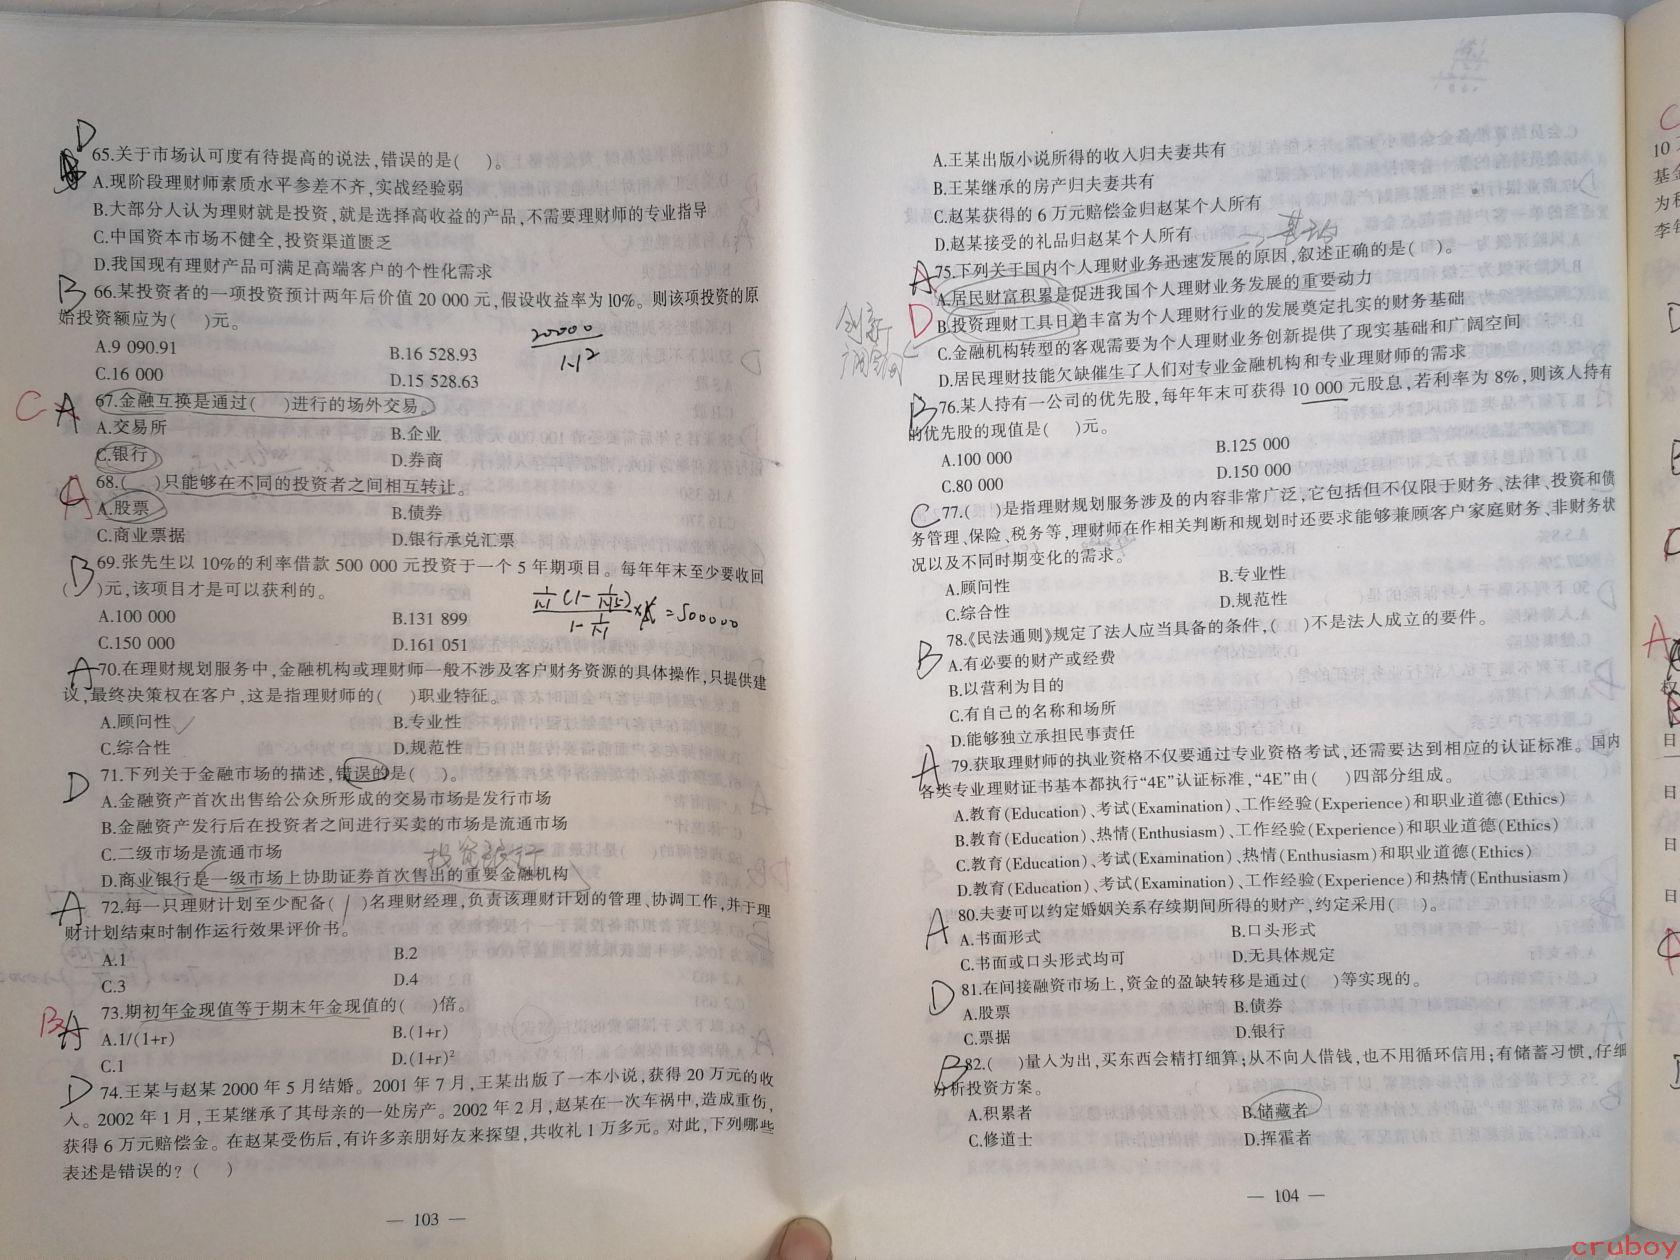 D
65.关于市场认可度有待提高的说法,错误的是( )。
A.现阶段理财师素质水平参差不齐,实战经验弱
B.大部分人认为理财就是投资,就是选择高收益的产品,不需要理财师的专业指导
C.中国资本市场不健全,投资渠道匮乏
D.我国现有理财产品可满足高端客户的个性化需求
B 66.某投资者的一项投资预计两年后价值 20 000 元,假设收益率为 10%。则该项投资的原
始投资额应为( )元。
20000
1.1²
A.9 090.91 B.16 528.93
C.16 000 D.15 528.63
C A 67.金融互换是通过( )进行的场外交易。
A.交易所 B.企业
C.银行 D.券商
A 68.( )只能够在不同的投资者之间相互转让。
A.股票 B.债券
C.商业票据 D.银行承兑汇票
B 69.张先生以 10%的利率借款 500 000 元投资于一个 5 年期项目。每年年末至少要收回
( )元,该项目才是可以获利的。
A.100 000 B.131 899
C.150 000 D.161 051
A 70.在理财规划服务中,金融机构或理财师一般不涉及客户财务资源的具体操作,只提供建
议,最终决策权在客户,这是指理财师的( )职业特征。
A.顾问性 B.专业性
C.综合性 D.规范性
D 71.下列关于金融市场的描述,错误的是( )。
A.金融资产首次出售给公众所形成的交易市场是发行市场
B.金融资产发行后在投资者之间进行买卖的市场是流通市场
C.二级市场是流通市场
投资银行
D.商业银行是一级市场上协助证券首次售出的重要金融机构
A 72.每一只理财计划至少配备( 1 )名理财经理,负责该理财计划的管理、协调工作,并于理
财计划结束时制作运行效果评价书。
A.1 B.2
C.3 D.4
B A 73.期初年金现值等于期末年金现值的( )倍。
A.1/(1+r) B.(1+r)
C.1 D.(1+r)²
D 74.王某与赵某 2000 年 5 月结婚。2001 年 7 月,王某出版了一本小说,获得 20 万元的收
入。2002 年 1 月,王某继承了其母亲的一处房产。2002 年 2 月,赵某在一次车祸中,造成重伤,
获得 6 万元赔偿金。在赵某受伤后,有许多亲朋好友来探望,共收礼 1 万多元。对此,下列哪些
表述是错误的?( )
— 103 —
A.王某出版小说所得的收入归夫妻共有
B.王某继承的房产归夫妻共有
C.赵某获得的 6 万元赔偿金归赵某个人所有
D.赵某接受的礼品归赵某个人所有
A 75.下列关于国内个人理财业务迅速发展的原因,叙述正确的是( )。
A.居民财富积累是促进我国个人理财业务发展的重要动力
D B.投资理财工具日趋丰富为个人理财行业的发展奠定扎实的财务基础
创新
C.金融机构转型的客观需要为个人理财业务创新提供了现实基础和广阔空间
D.居民理财技能欠缺催生了人们对专业金融机构和专业理财师的需求
B 76.某人持有一公司的优先股,每年年末可获得 10 000 元股息,若利率为 8%,则该人持有
的优先股的现值是( )元。
A.100 000 B.125 000
C.80 000 D.150 000
C 77.( )是指理财规划服务涉及的内容非常广泛,它包括但不仅限于财务、法律、投资和债
务管理、保险、税务等,理财师在作相关判断和规划时还要求能够兼顾客户家庭财务、非财务状
况以及不同时期变化的需求。
A.顾问性 B.专业性
C.综合性 D.规范性
78.《民法通则》规定了法人应当具备的条件,( )不是法人成立的要件。
B A.有必要的财产或经费
B.以营利为目的
C.有自己的名称和场所
D.能够独立承担民事责任
A 79.获取理财师的执业资格不仅要通过专业资格考试,还需要达到相应的认证标准。国内
各类专业理财证书基本都执行“4E”认证标准,“4E”由( )四部分组成。
A.教育(Education)、考试(Examination)、工作经验(Experience)和职业道德(Ethics)
B.教育(Education)、热情(Enthusiasm)、工作经验(Experience)和职业道德(Ethics)
C.教育(Education)、考试(Examination)、热情(Enthusiasm)和职业道德(Ethics)
D.教育(Education)、考试(Examination)、工作经验(Experience)和热情(Enthusiasm)
A 80.夫妻可以约定婚姻关系存续期间所得的财产,约定采用( )。
A.书面形式 B.口头形式
C.书面或口头形式均可 D.无具体规定
D 81.在间接融资市场上,资金的盈缺转移是通过( )等实现的。
A.股票 B.债券
C.票据 D.银行
B 82.( )量入为出,买东西会精打细算;从不向人借钱,也不用循环信用;有储蓄习惯,仔细
分析投资方案。
A.积累者 B.储藏者
C.修道士 D.挥霍者
— 104 —
cruboy